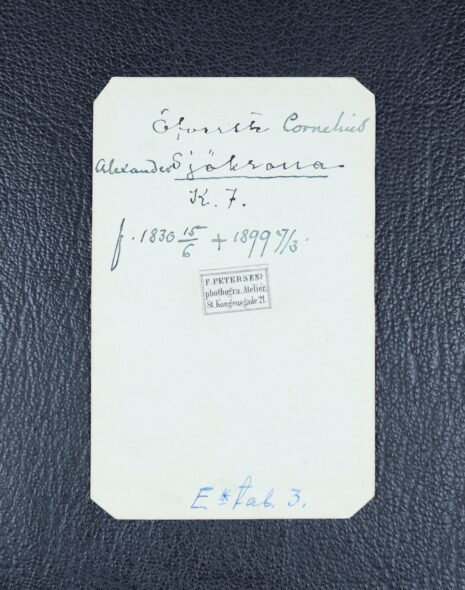 Öfverste Cornelius
Alexander Sjökrona
K. F.
f. 1830 15/6 + 1899 7/3.
F. PETERSENS
phothogra. Atelier.
St. Kongensgade 21.
E * tab. 3.